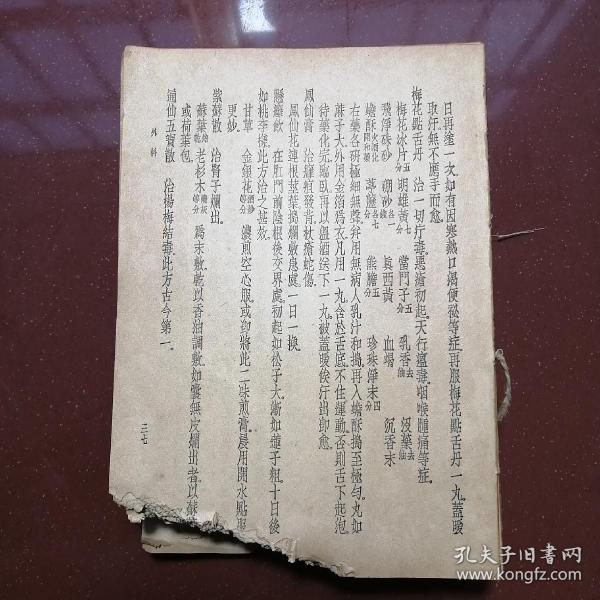 日再塗一次如有因寒熱口渴便秘等症再服梅花點舌丹一丸蓋暖
取汗無不應手而愈
梅花點舌丹 治一切疔毒惡瘡初起天行瘟毒咽喉腫痛等症
梅花冰片五分 明雄黃七分 當門子五分 乳香去油 沒藥去油
飛淨硃砂 硼砂各一錢 真西黃 血竭 沉香末
蟾酥火酒化開和藥 葶藶各七分 熊膽五分 珍珠淨末四分
右藥各研極細無聲弁用無病人乳汁和搗再入蟾酥搗至極勻丸如
蔴子大外用金箔爲衣凡用一丸含於舌底不住運動否則舌下起泡
待藥化完臨臥再以溫酒送下一丸被蓋暖俟汗出卽愈
鳳仙膏 治癰疽發背杖瘡蛇傷
鳳仙花連根莖葉搗爛敷患處一日一換
懸癰飲 在肛門前陰根後交界處初起如松子大漸如蓮子粗十日後
如桃李樣此方治之甚效
甘草 金銀花 濃煎空心服或卽將此二味煎膏晨用開水點服
更妙
紫蘇散 治腎子爛出
蘇葉 老杉木 爲末敷乾以香油調敷如囊無皮爛出者以蘇
或荷葉包
通仙五寶散 治楊梅結毒此方古今第一
外科
三七
孔夫子旧书网
www.kongfz.com